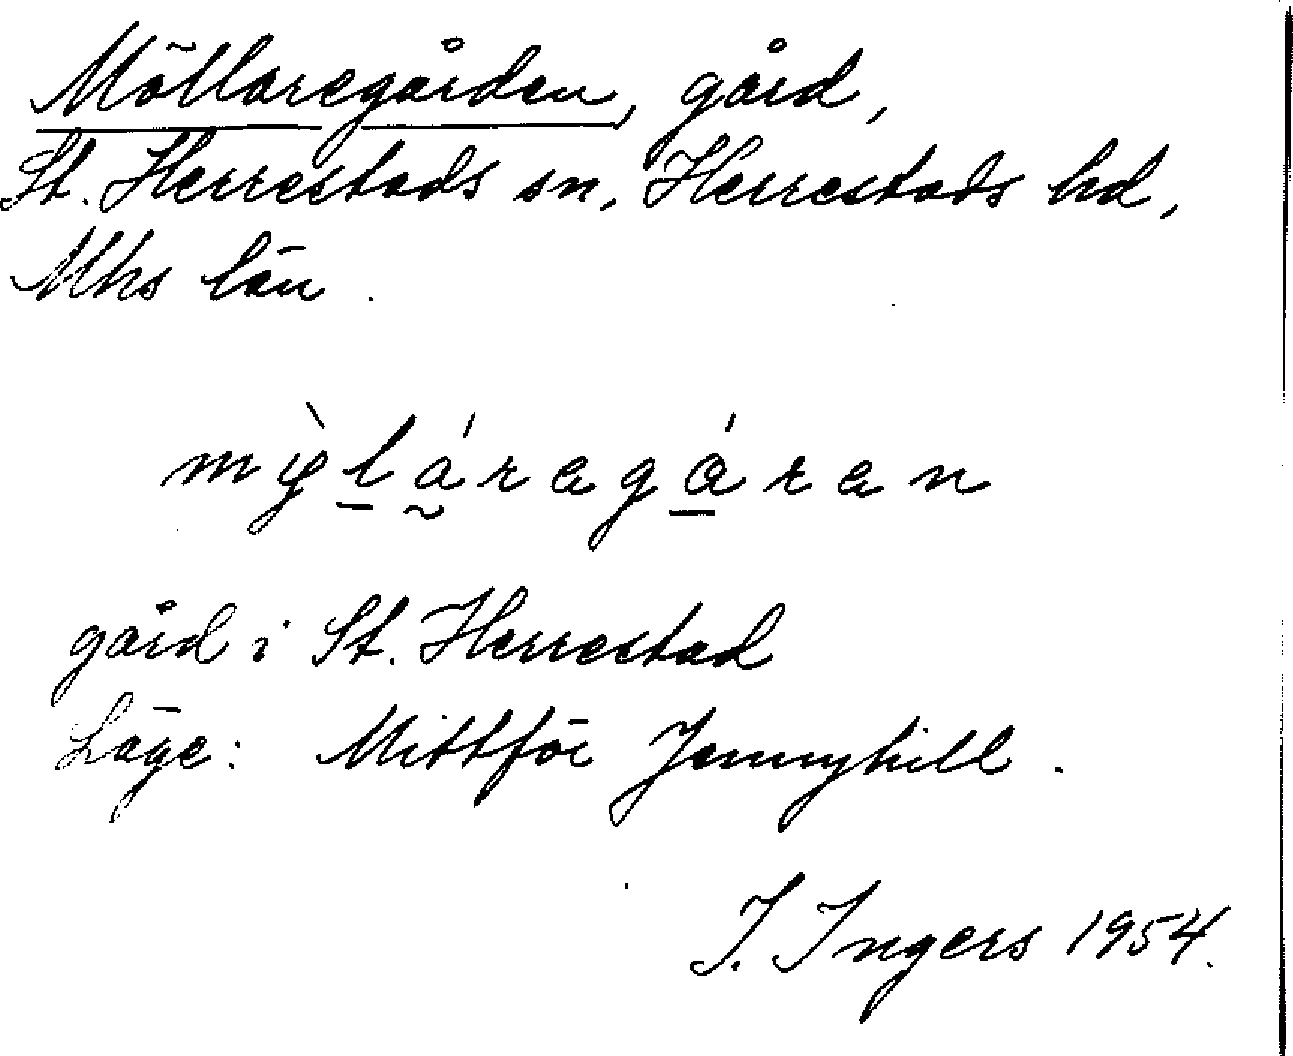 Möllaregården, gård,
St. Herrestads sn, Herrestads hd,
Mhs län.
gård i St. Herrestad
Läge: Mittför Jennyhill.
I. Ingers 1954.